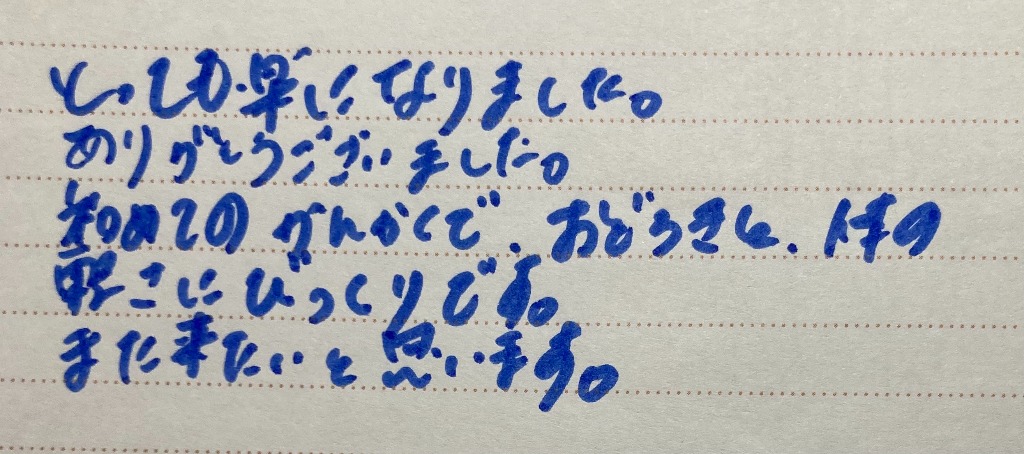 とっても楽になりました。
ありがとうございました。
初めてのかんかくで、おどろきと、体の
軽さにびっくりです。
また来たいと思います。